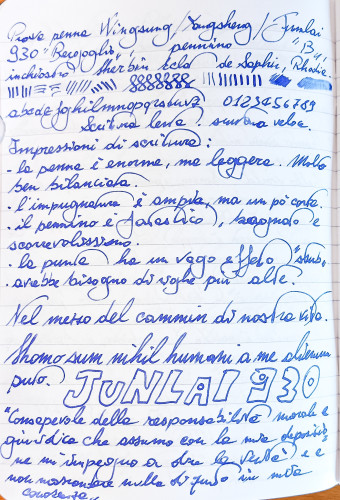 Prova penna Wingsung/Yongsheng/Junlai
930 "Orologio" pennino "B"
inchiostro Herbin Ecla de Saphir, Rhodia.
88888888
abcdefghilmnopqrstuvz 0123456789
Scrittura lenta, scrittura veloce.
Impressioni di scrittura:
- la penna è enorme, ma leggera. Molto
ben bilanciata.
- l'impugnatura è ampia, ma un pò corta.
- il pennino è fantastico, bagnato e
scorrevolissimo.
- la punta ha un vago effetto "stub".
- avrebbe bisogno di righe più alte.
Nel mezzo del cammin di nostra vita.
Homo sum nihil humani a me alienum
puto. JUNLAI 930
"Consapevole della responsabilità morale e
giuridica che assumo con la mia deposizione
mi impegno a dire la verità e a
non nascondere nulla di quanto in mia
conoscenza"